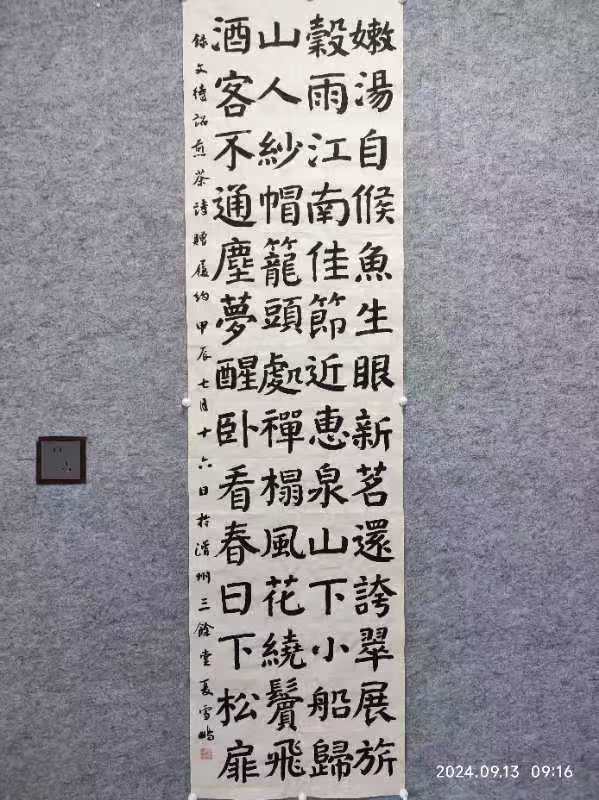 嫩湯自候魚生眼新茗還誇翠展旂
穀雨江南佳節近惠泉山下小船歸
山人紗帽籠頭處禪榻風花繞鬢飛
酒客不通塵夢醒卧看春日下松扉
錄文待詔煎茶詩贈履約甲辰七月十六日於潛州三餘堂夏雪
2024.09.13 09:16